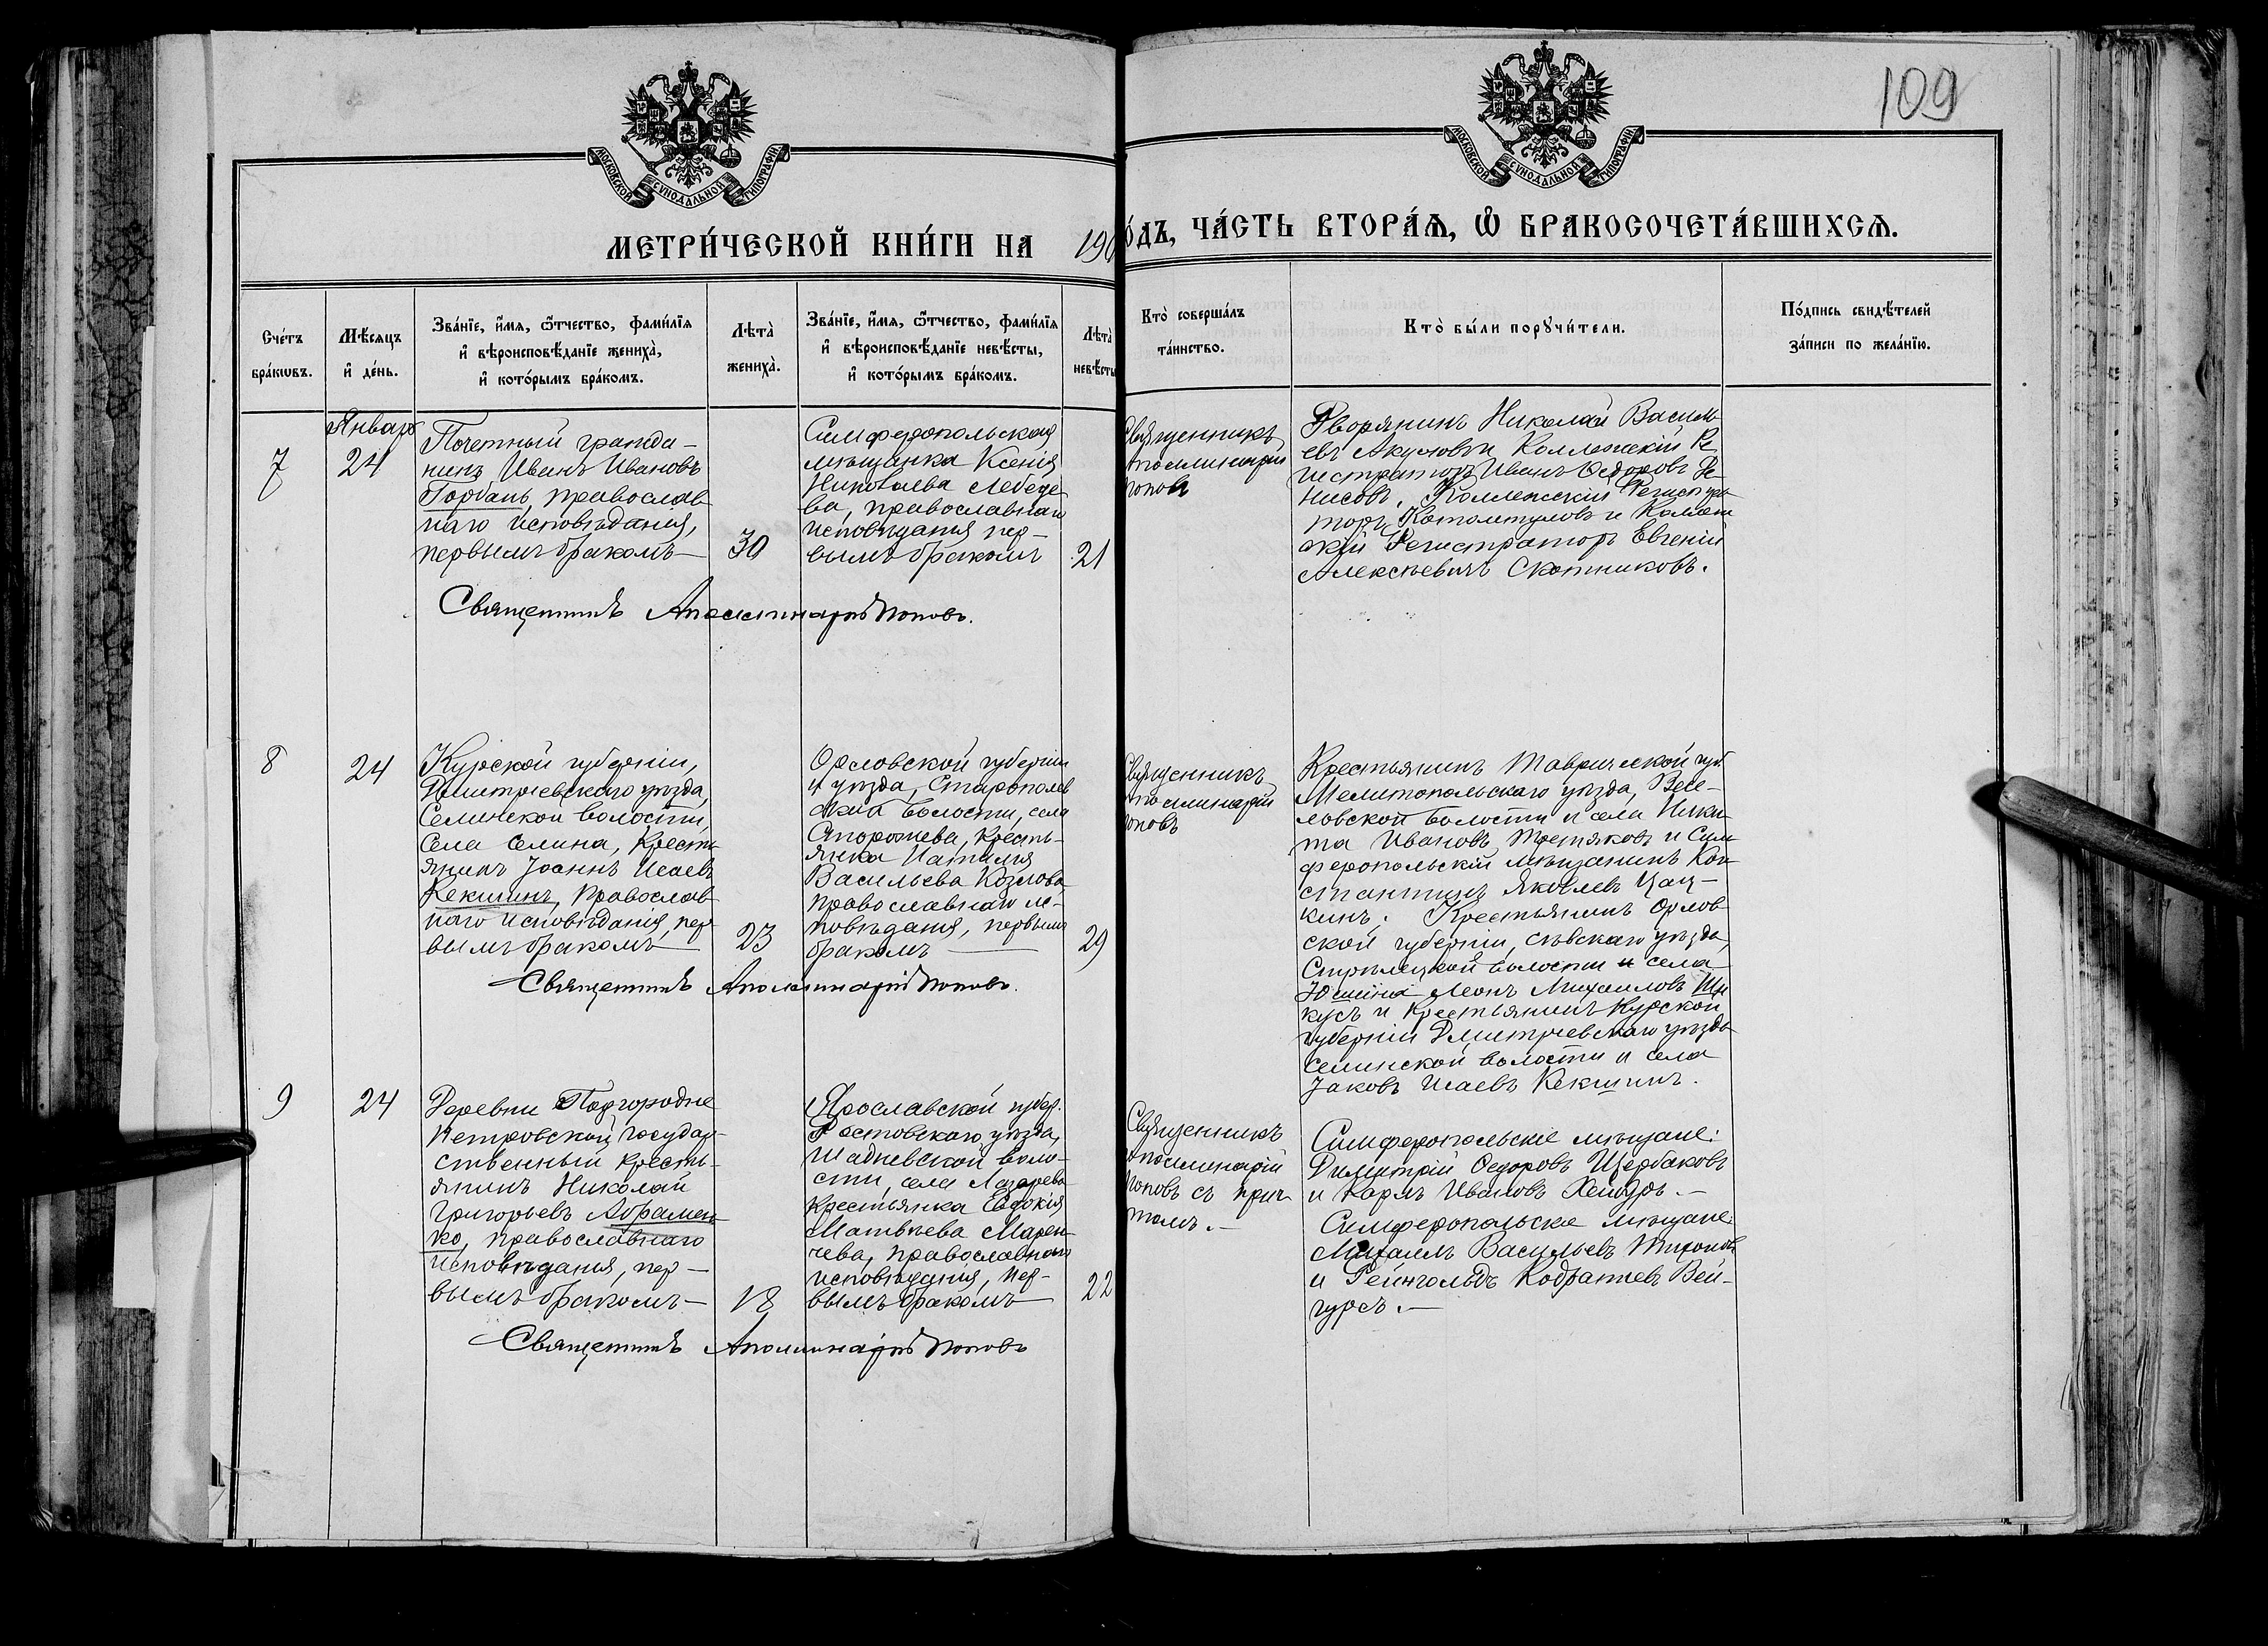 109
МОСКОВСКОЙ СѴНОДАЛЬНОЙ ТИПОГРАФІИ
МОСКОВСКОЙ СѴНОДАЛЬНОЙ ТИПОГРАФІИ
МЕТРИ́ЧЕСКОЙ КНИ́ГИ НА 190
О́ДЪ, ЧА́СТЬ ВТОРА́Ѧ, Ѽ БРАКОСОЧЕТА́ВШИХСѦ.
Сче́тъ
бра́кωвъ.
Мѣ́сяцъ
и҆ де́нь.
Зва́нїе, и҆́мя, ѻ҆́тчество, фами́лїя
и҆ вѣроисповѣ́данїе жениха̀,
и҆ кото́рымъ бра́комъ.
Лѣта̀
жениха̀.
Зва́нїе, и҆́мя, ѻ҆́тчество, фами́лїя
и҆ вѣроисповѣ́данїе невѣ́сты,
и҆ кото́рымъ бра́комъ.
Лѣта̀
невѣ́сты
Кто̀ соверша́лъ
та́инство.
Кто̀ бы́ли порꙋчи́тели.
По́дпись свидѣ́телей
за́писи по жела́нїю.
7
Январь
24
Почетный гражда-
нинъ Иванъ Ивановъ
Горбань, православ
наго исповѣданія,
первымъ бракомъ
30
Симферопольская
мѣщанка Ксенія
Николаева Лебеде
ва, православнаго
исповѣданія пер-
вымъ бракомъ
21
Священникъ
Поповъ
Дворянинъ Николай Василь
евъ Коллежскій Ре
гистраторъ Иванъ Ѳедоровъ Де
нисовъ, Коллежскій Регистра
торъ и Коллеж
скій Регистраторъ Евгеній
Алексѣевичъ Скотниковъ.
Священникъ Аполлинарій Поповъ.
8
24
Курской губерніи,
Дмитріевскаго уѣзда,
Селинской волости,
Села Селина, Кресть
янинъ Іоаннъ Исаевъ
Кекшинъ, Православ
наго исповѣданія, пер
вымъ бракомъ
23
Орловской губерніи
и уѣзда,
волости, села
Кресть-
янка Наталія
Васильева Козлова,
православнаго ис-
повѣданія, первымъ
бракомъ
29
Священникъ
Аполлинарій
Поповъ
Крестьянинъ Таврической губ
Мелитопольскаго уѣзда, Весе-
ловской волости и села Ники
та Ивановъ Третяковъ и Сим
феропольскій мѣщанинъ Кон
стантинъ Яковлевъ Цац-
кинъ; Крестьянинъ Орлов
ской губерніи, Сѣвскаго уѣзда,
Стрѣлецкой волости и села
Юшина Леонъ Михаиловъ
кусъ и Крестьянинъ Курской
губерніи Дмитріевскаго уѣзда
Селинской волости и села
Іаковъ Исаевъ Кекшинъ.
Священникъ Аполлинарій Поповъ.
9
24
Деревни Подгородне
Петровской государ-
ственный кресть-
янинъ Николай
Григорьевъ Абрамен
ко, православнаго
исповѣданія, пер-
вымъ бракомъ
18
Ярославской губер.
Ростовскаго уѣзда,
Шадневской воло-
сти, села Лазарева
крестьянка Евдокія
Матвѣева Марен
чева, православнаго
исповѣданія, пер-
вымъ бракомъ
22
Священникъ
Аполлинарій
Поповъ съ прич
томъ.
Симферопольскіе мѣщане:
Димитрій Ѳедоровъ Щербаковъ
и Карлъ Ивановъ
Симферопольскіе мѣщане:
Михаилъ Васильевъ Тихоновъ
и Рейнгольдъ Кодратіевъ Вей-
гурсъ.
Священникъ Аполлинарій Поповъ